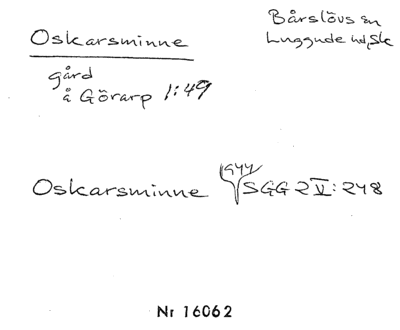 Oskarsminne
Bårslövs sn
Luggude hd, Sk
gård
å Görarp 1:49
Oskarsminne 1944 SGG 2 V: 248
Nr 16062